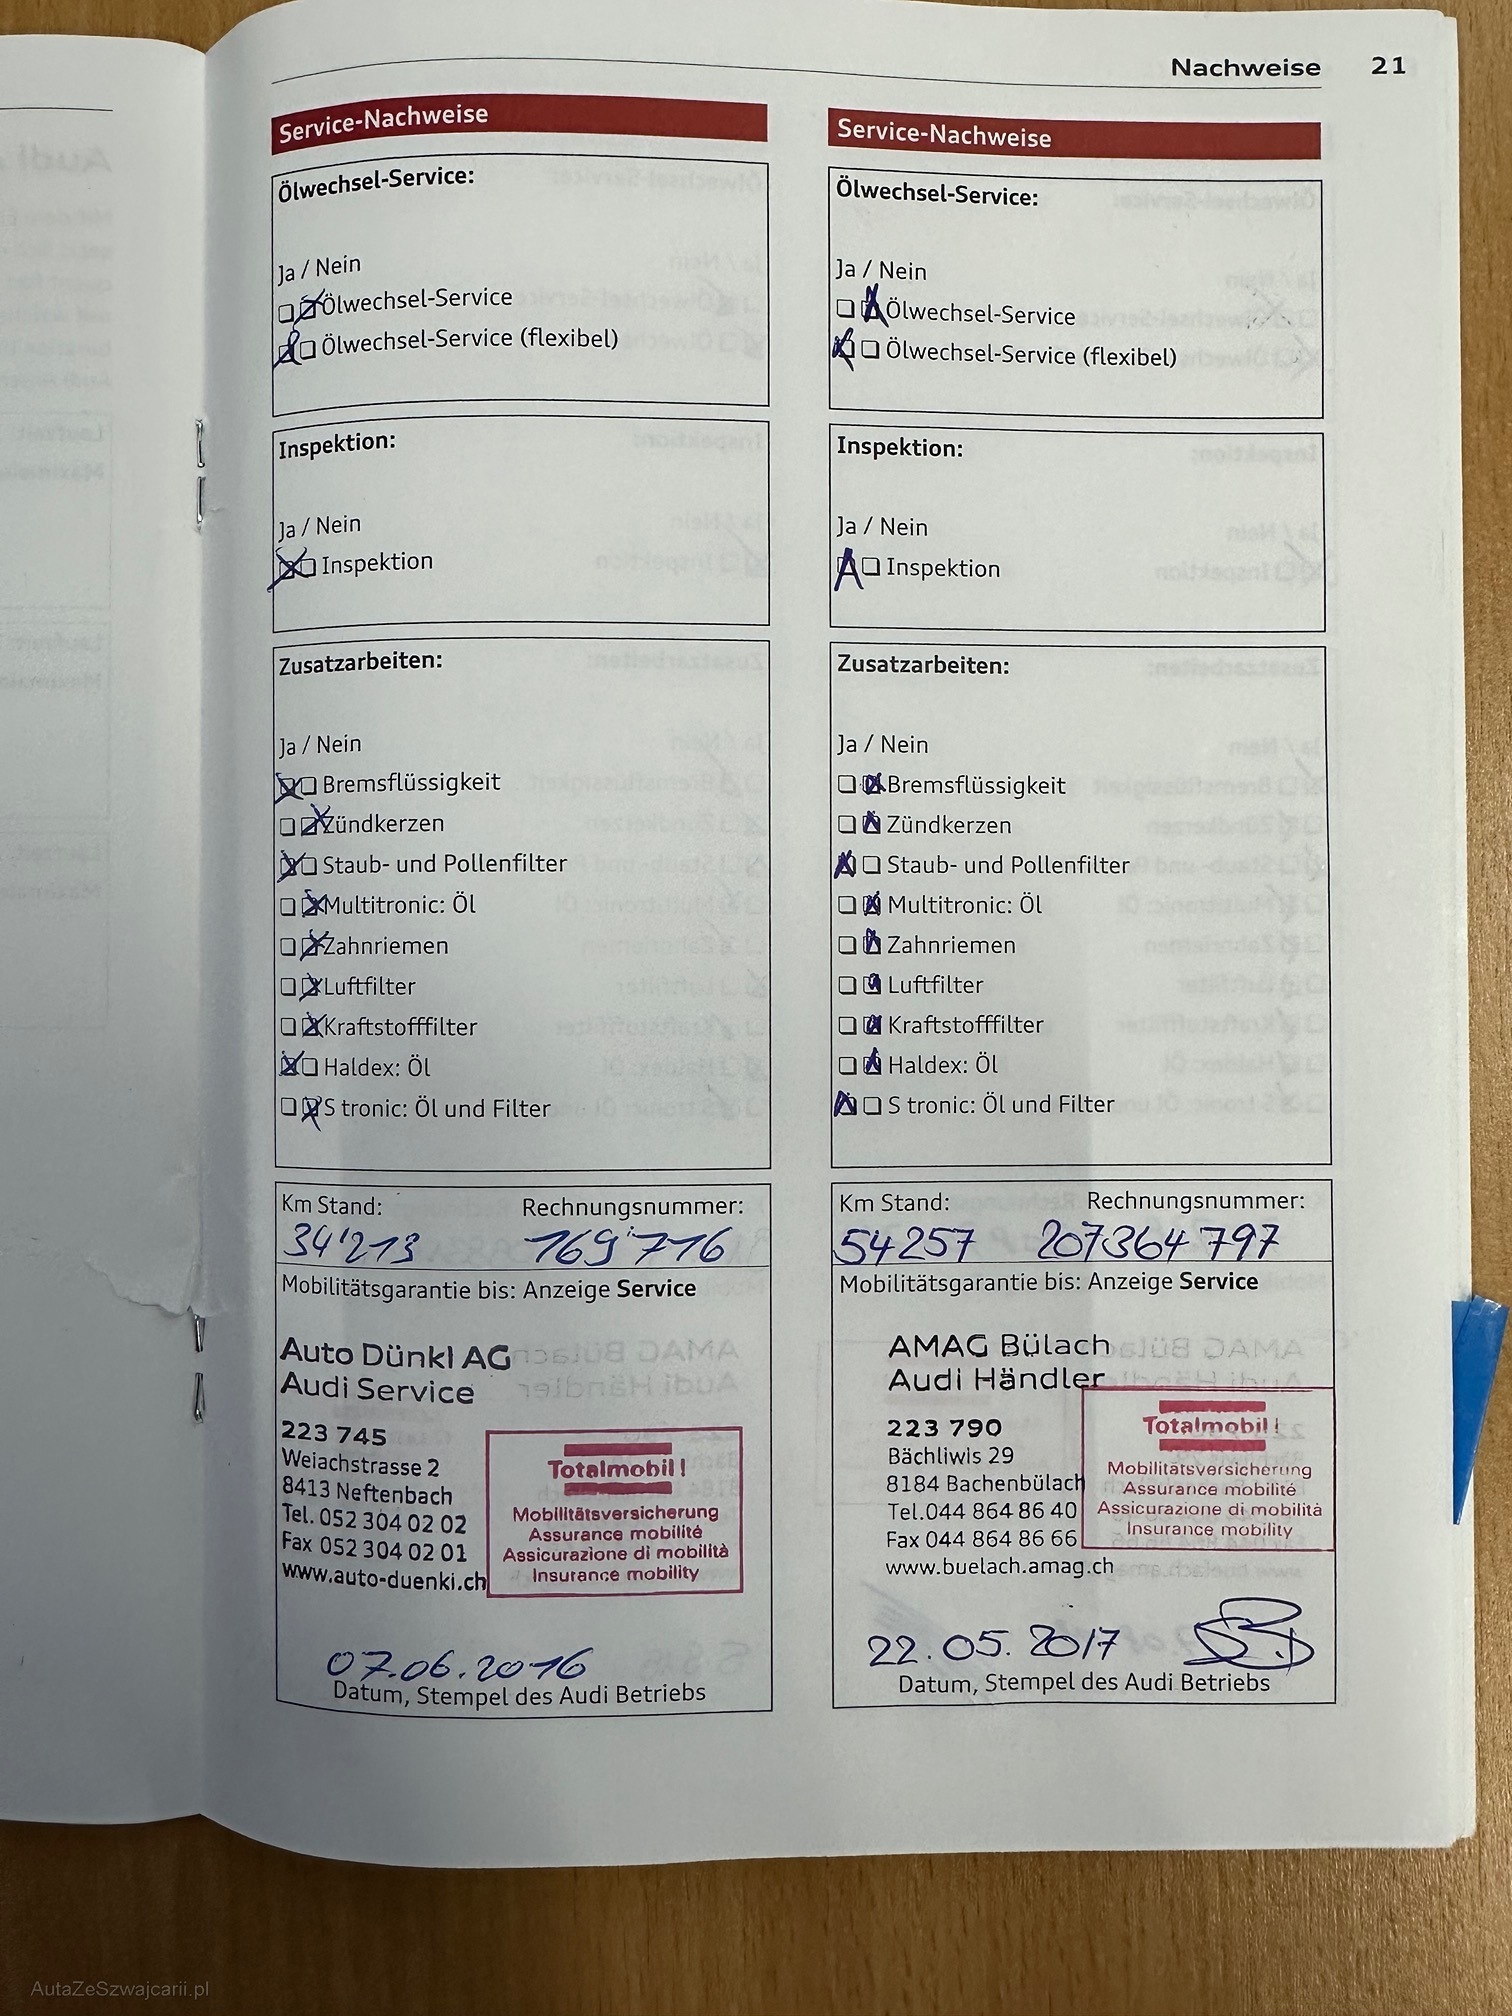 Nachweise 21
Service-Nachweise
Ölwechsel-Service:
Ja / Nein
Ölwechsel-Service
Ölwechsel-Service (flexibel)
Inspektion:
Ja / Nein
Inspektion
Zusatzarbeiten:
Ja / Nein
Bremsflüssigkeit
Zündkerzen
Staub- und Pollenfilter
Multitronic: Öl
Zahnriemen
Luftfilter
Kraftstofffilter
Haldex: Öl
S tronic: Öl und Filter
Km Stand: Rechnungsnummer:
34'213 169'716
Mobilitätsgarantie bis: Anzeige Service
Auto Dünkl AG
Audi Service
223 745
Weiachstrasse 2
8413 Neftenbach
Tel. 052 304 02 02
Fax 052 304 02 01
www.auto-duenki.ch
Totalmobil!
Mobilitätsversicherung
Assurance mobilité
Assicurazione di mobilità
Insurance mobility
07.06.2016
Datum, Stempel des Audi Betriebs
Service-Nachweise
Ölwechsel-Service:
Ja / Nein
Ölwechsel-Service
Ölwechsel-Service (flexibel)
Inspektion:
Ja / Nein
Inspektion
Zusatzarbeiten:
Ja / Nein
Bremsflüssigkeit
Zündkerzen
Staub- und Pollenfilter
Multitronic: Öl
Zahnriemen
Luftfilter
Kraftstofffilter
Haldex: Öl
S tronic: Öl und Filter
Km Stand: Rechnungsnummer:
54257 207364797
Mobilitätsgarantie bis: Anzeige Service
AMAG Bülach
Audi Händler
223 790
Bächliwis 29
8184 Bachenbülach
Tel.044 864 86 40
Fax 044 864 86 66
www.buelach.amag.ch
Totalmobil!
Mobilitätsversicherung
Assurance mobilité
Assicurazione di mobilità
Insurance mobility
22.05.2017
Datum, Stempel des Audi Betriebs
AutaZeSzwajcarii.pl